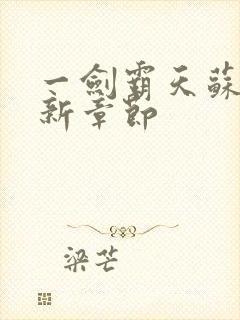 一劍霸天蘇
新章節
梁芒